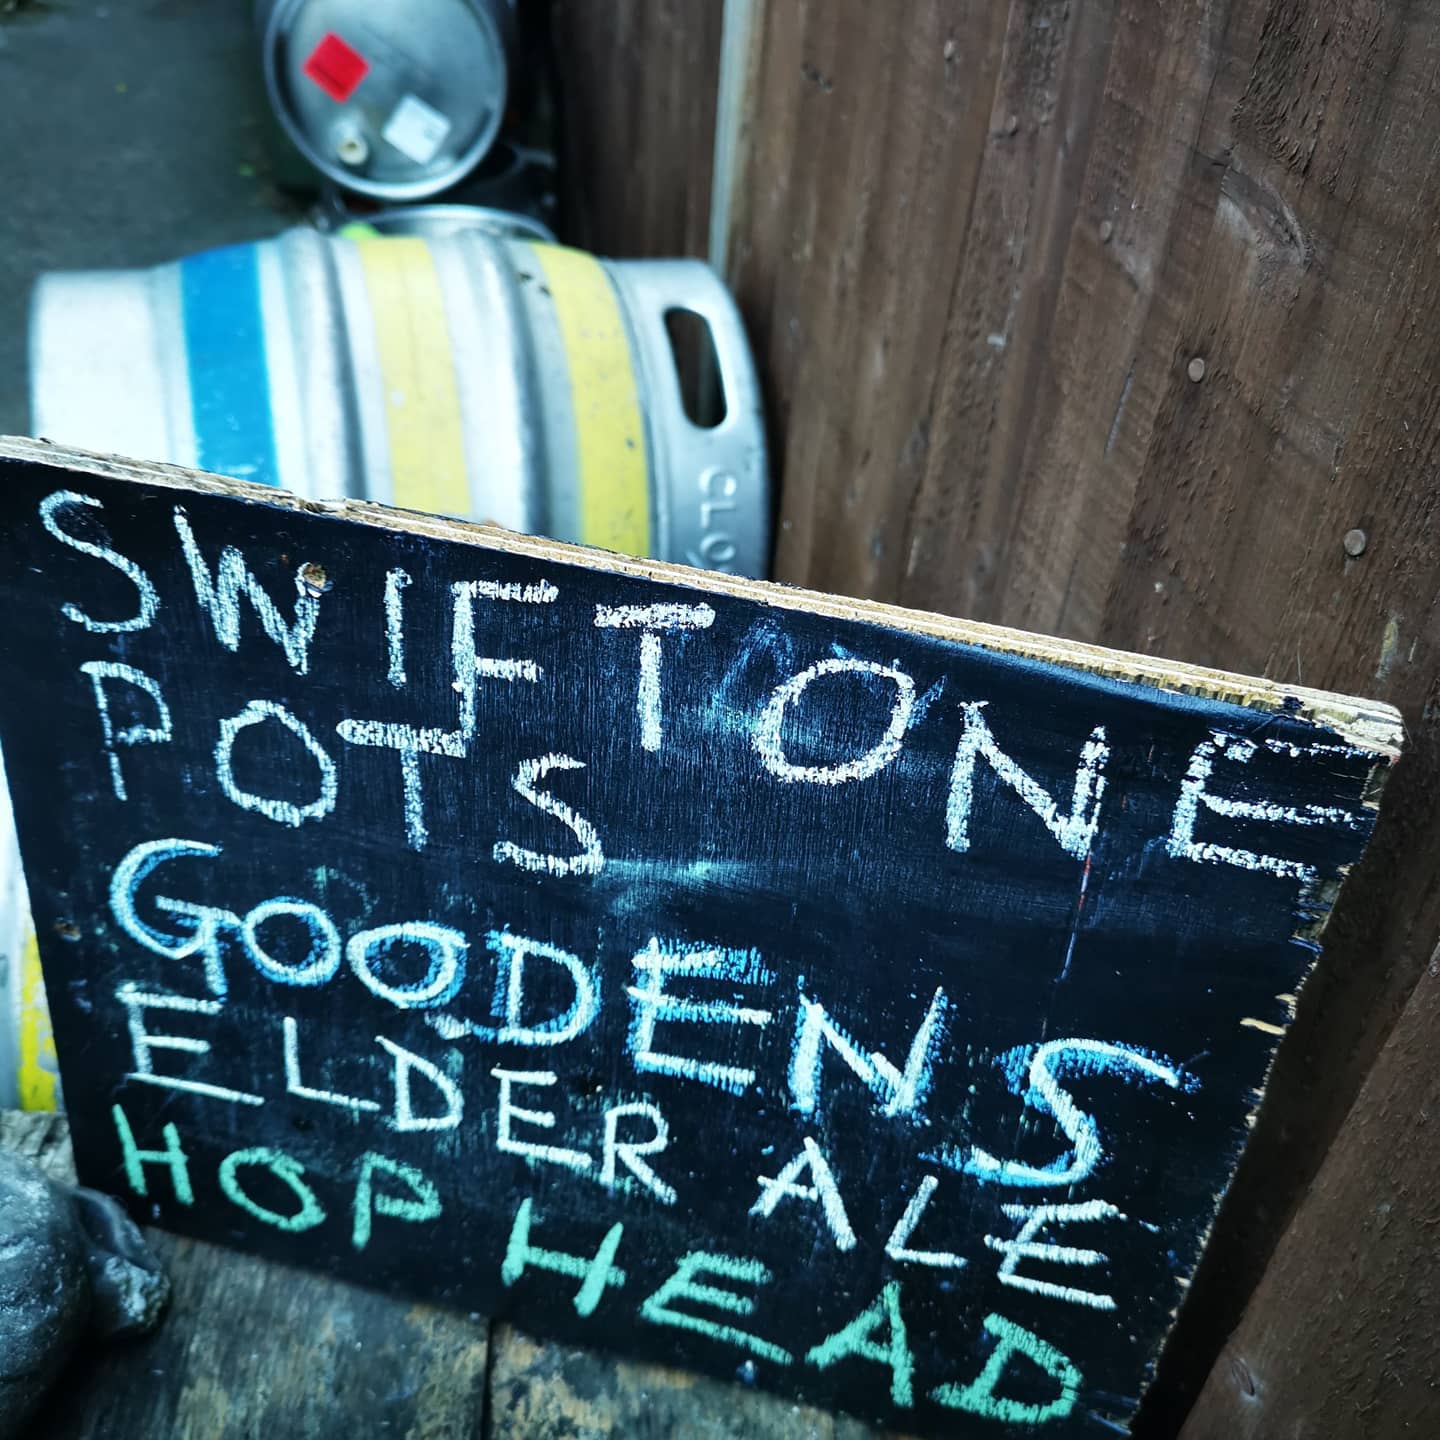 SWIFT ONE
POTS
GOODENS
ELDER ALE
HOP HEAD